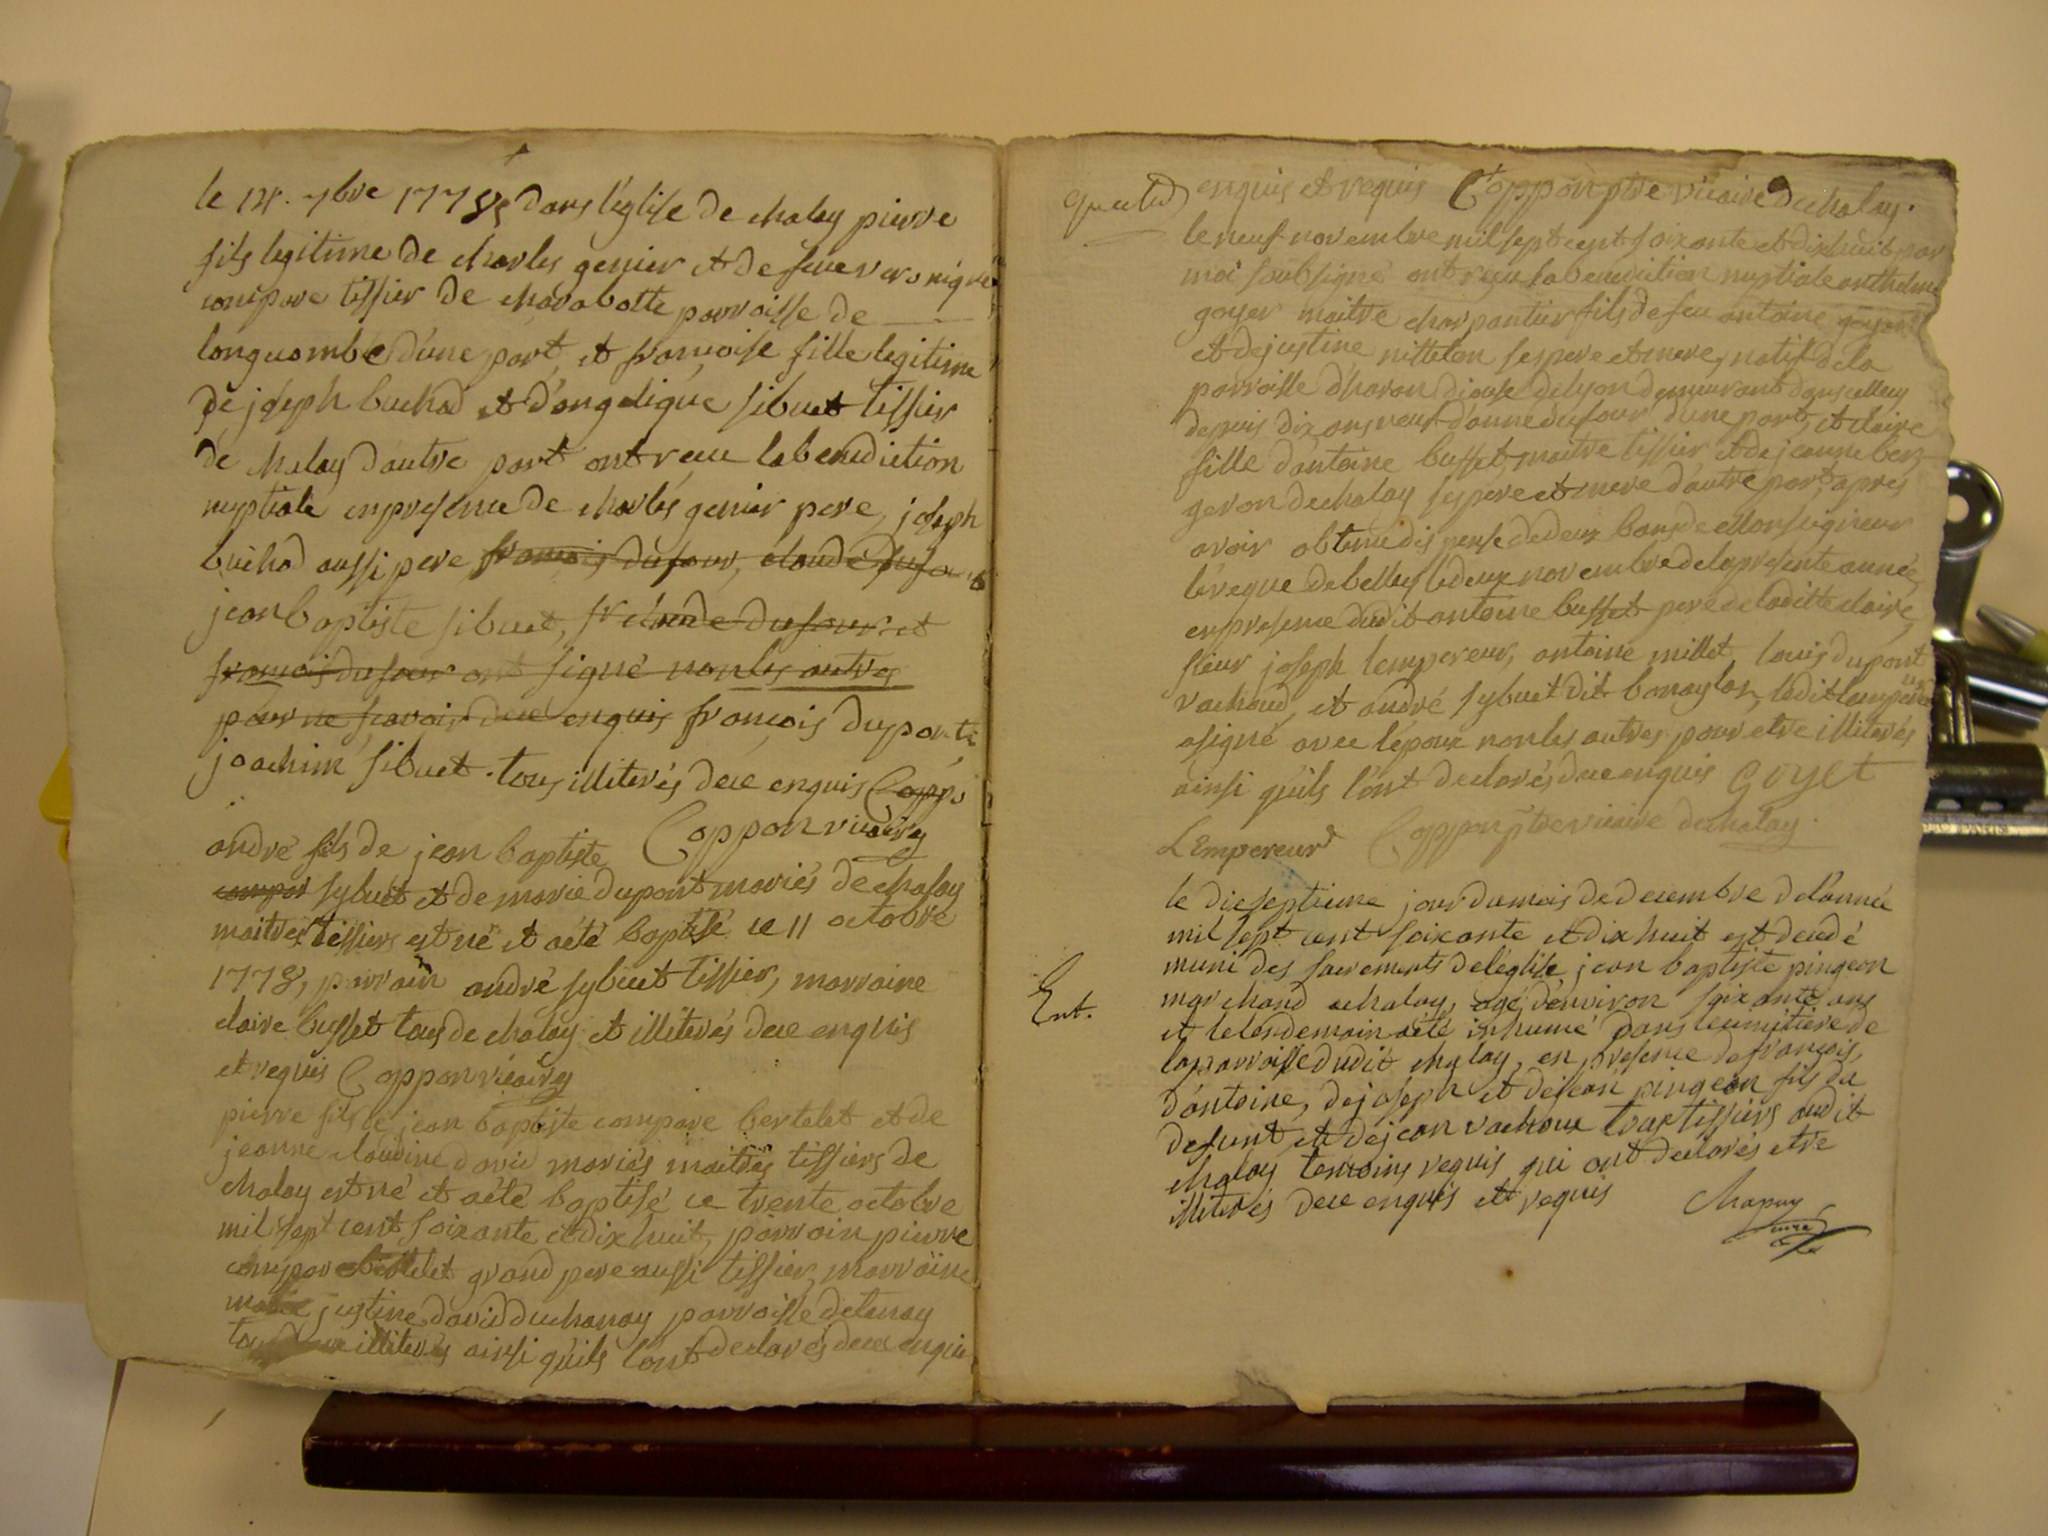 le 14. 7bre 1778, dans l'église de chaley pierre
fils legitime de charles genier et de feue veronique
compare tissier de charabotte parroisse de
longecombe d'une part, et françoise fille legitime
de joseph buchad et d'angelique sibuet tissier
de chaley d'autre part ont receu la benediction
nuptiale en presence de charles genier pere, joseph
buchad aussi pere françois dufour, claude dufour
jean baptiste sibuet, claude dufour et
françois dufour ont signé non les autres
pour ne sçavoir de ce enquis françois dupont
joachim sibuet. tous illiterés de ce enquis Coppo
andré fils de jean baptiste Coppon vicaire
compar sybuet et de marie dupont mariés de chaley
maitres tissiers est né et a été baptisé ce 11 octobre
1778, parrain andré sybuet tissier, marraine
claire buffet tous de chaley et illiterés de ce enquis
et requis Coppon vicaire
pierre fils de jean baptiste compare bertelet et de
jeanne claudine david mariés maitres tissiers de
chaley est né et a été baptisé ce trente octobre
mil sept cent soixante et dix huit, parrain pierre
compare bertelet grand pere aussi tissier, marraine
justine david du chanay parroisse de tenay
illiterés ainsi qu'ils l'ont declarés de ce enquis
enquis et requis Coppon ptre vicaire de chaley.
le neuf novembre mil sept cent soixante et dix huit par
moi soubsigné ont reçu la benediction nuptiale anthelme
goyet maitre charpantier fils de feu antoine goyet
et de justine nitteton ses pere et mere, natif de la
parroisse d'haron diocese de lyon demeurant dans
depuis dix ans d'une part, et claire
fille d'antoine buffet maitre tissier et de jeanne ber
geron de chaley ses pere et mere d'autre part, apres
avoir obtenu dispense de deux bans de Monseigneur
l'éveque de belley le deux novembre de la presente année
en presence dudit antoine buffet pere de laditte claire,
sieur joseph lempereur, antoine millet, louis dupont
vachoud, et andré sybuet dit bonaylon, ledit lempereur
a signé avec l'époux non les autres pour etre illiterés
ainsi qu'ils l'ont declarés de ce enquis Goyet
L'Empereur Coppon ptre vicaire de chaley.
le dix septieme jour du mois de decembre de l'année
mil sept cent soixante et dix huit est decedé
muni des sacrements de l'église jean baptiste pingeon
Ent.
marchand a chaley, agé d'environ soixante ans
et le lendemain a été inhumé dans le cimitiere de
la parroisse dudit chaley, en presence de françois,
d'antoine, de joseph et de jean pingeon fils du
defunt et de jean vachoux tous tissiers audit
chaley temoins requis qui ont declarés etre
illiterés de ce enquis et requis Chapuy
curé